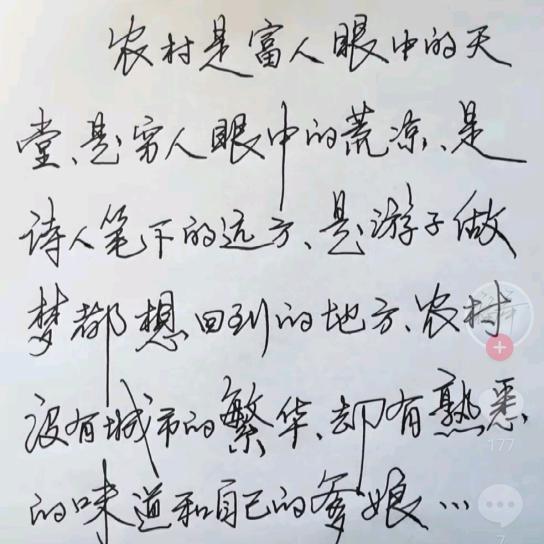 农村是富人眼中的天
堂、是穷人眼中的荒凉、是
诗人笔下的远方、是游子做
梦都想回到的地方、农村
没有城市的繁华、却有熟悉
的味道和自己的爹娘…
177
7